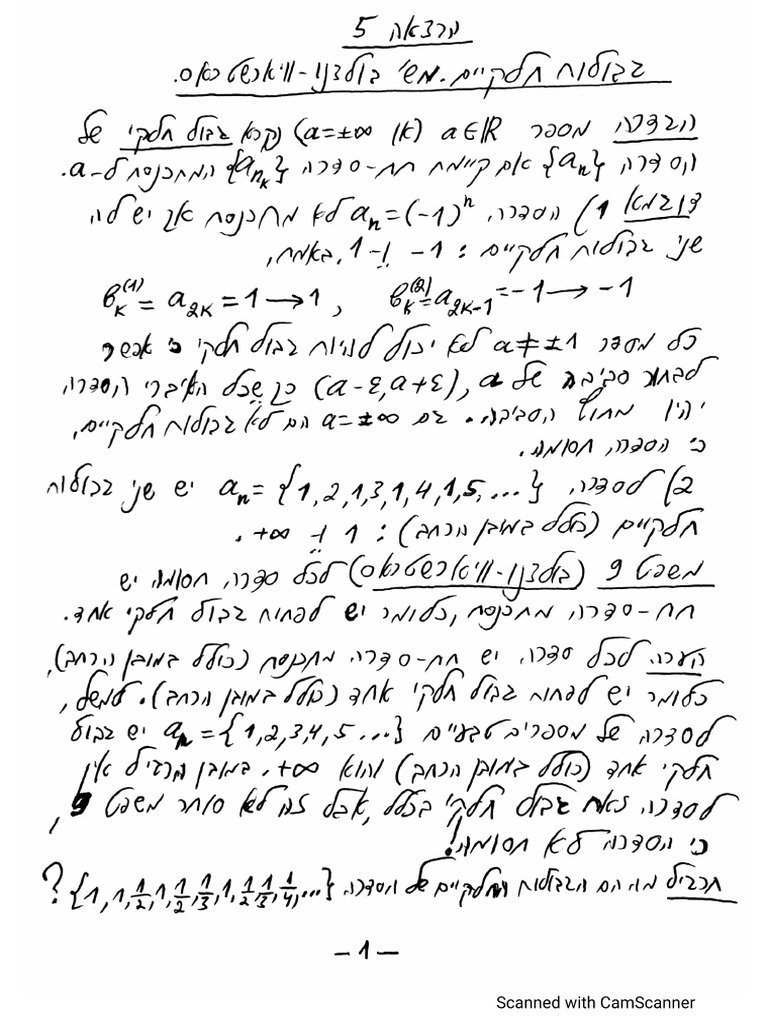 הרצאה 5
גבולות חלקיים. מש' בולצנו-וויארשטראס.
הגדרה מספר a∈ℝ (או a=±∞) נקרא גבול חלקי של
הסדרה {aₙ} אם קיימת תת-סדרה {aₙₖ} המתכנסת ל-a.
דוגמא 1) הסדרה aₙ=(-1)ⁿ לא מתכנסת אך יש לה
שני גבולות חלקיים: 1- ו-1. באמת,
bₖ⁽¹⁾=a₂ₖ=1→1, bₖ⁽²⁾=a₂ₖ₋₁=-1→-1
כל מספר a≠±1 לא יכול להיות גבול חלקי כי אפשר
לבחור סביבה של a, (a-ε,a+ε) כך שכל האיברי הסדרה
יהיו מחוץ הסביבה. גם a=±∞ הם לא גבולות חלקיים,
כי הסדרה חסומה.
2) לסדרה aₙ={1,2,1,3,1,4,1,5,...} יש שני גבולות
חלקיים (כולל במובן הרחב): 1 ו- +∞.
משפט 9 (בולצנו-וויארשטראס) לכל סדרה חסומה יש
תת-סדרה מתכנסת, כלומר יש לפחות גבול חלקי אחד.
הערה לכל סדרה יש תת-סדרה מתכנסת (כולל במובן הרחב),
כלומר יש לפחות גבול חלקי אחד (כולל במובן הרחב). למשל,
לסדרה של מספרים טבעיים aₙ={1,2,3,4,5...} יש גבול
חלקי אחד (כולל במובן הרחב) והוא +∞. במובן הרגיל אין
לסדרה זאת גבול חלקי בכלל, אבל זה לא סותר משפט 9,
כי הסדרה לא חסומה!
תרגיל מה הם הגבולות החלקיים של הסדרה {1,1,1/2,1,1/2,1/3,1,1/2,1/3,1/4,...}?
-1-
Scanned with CamScanner